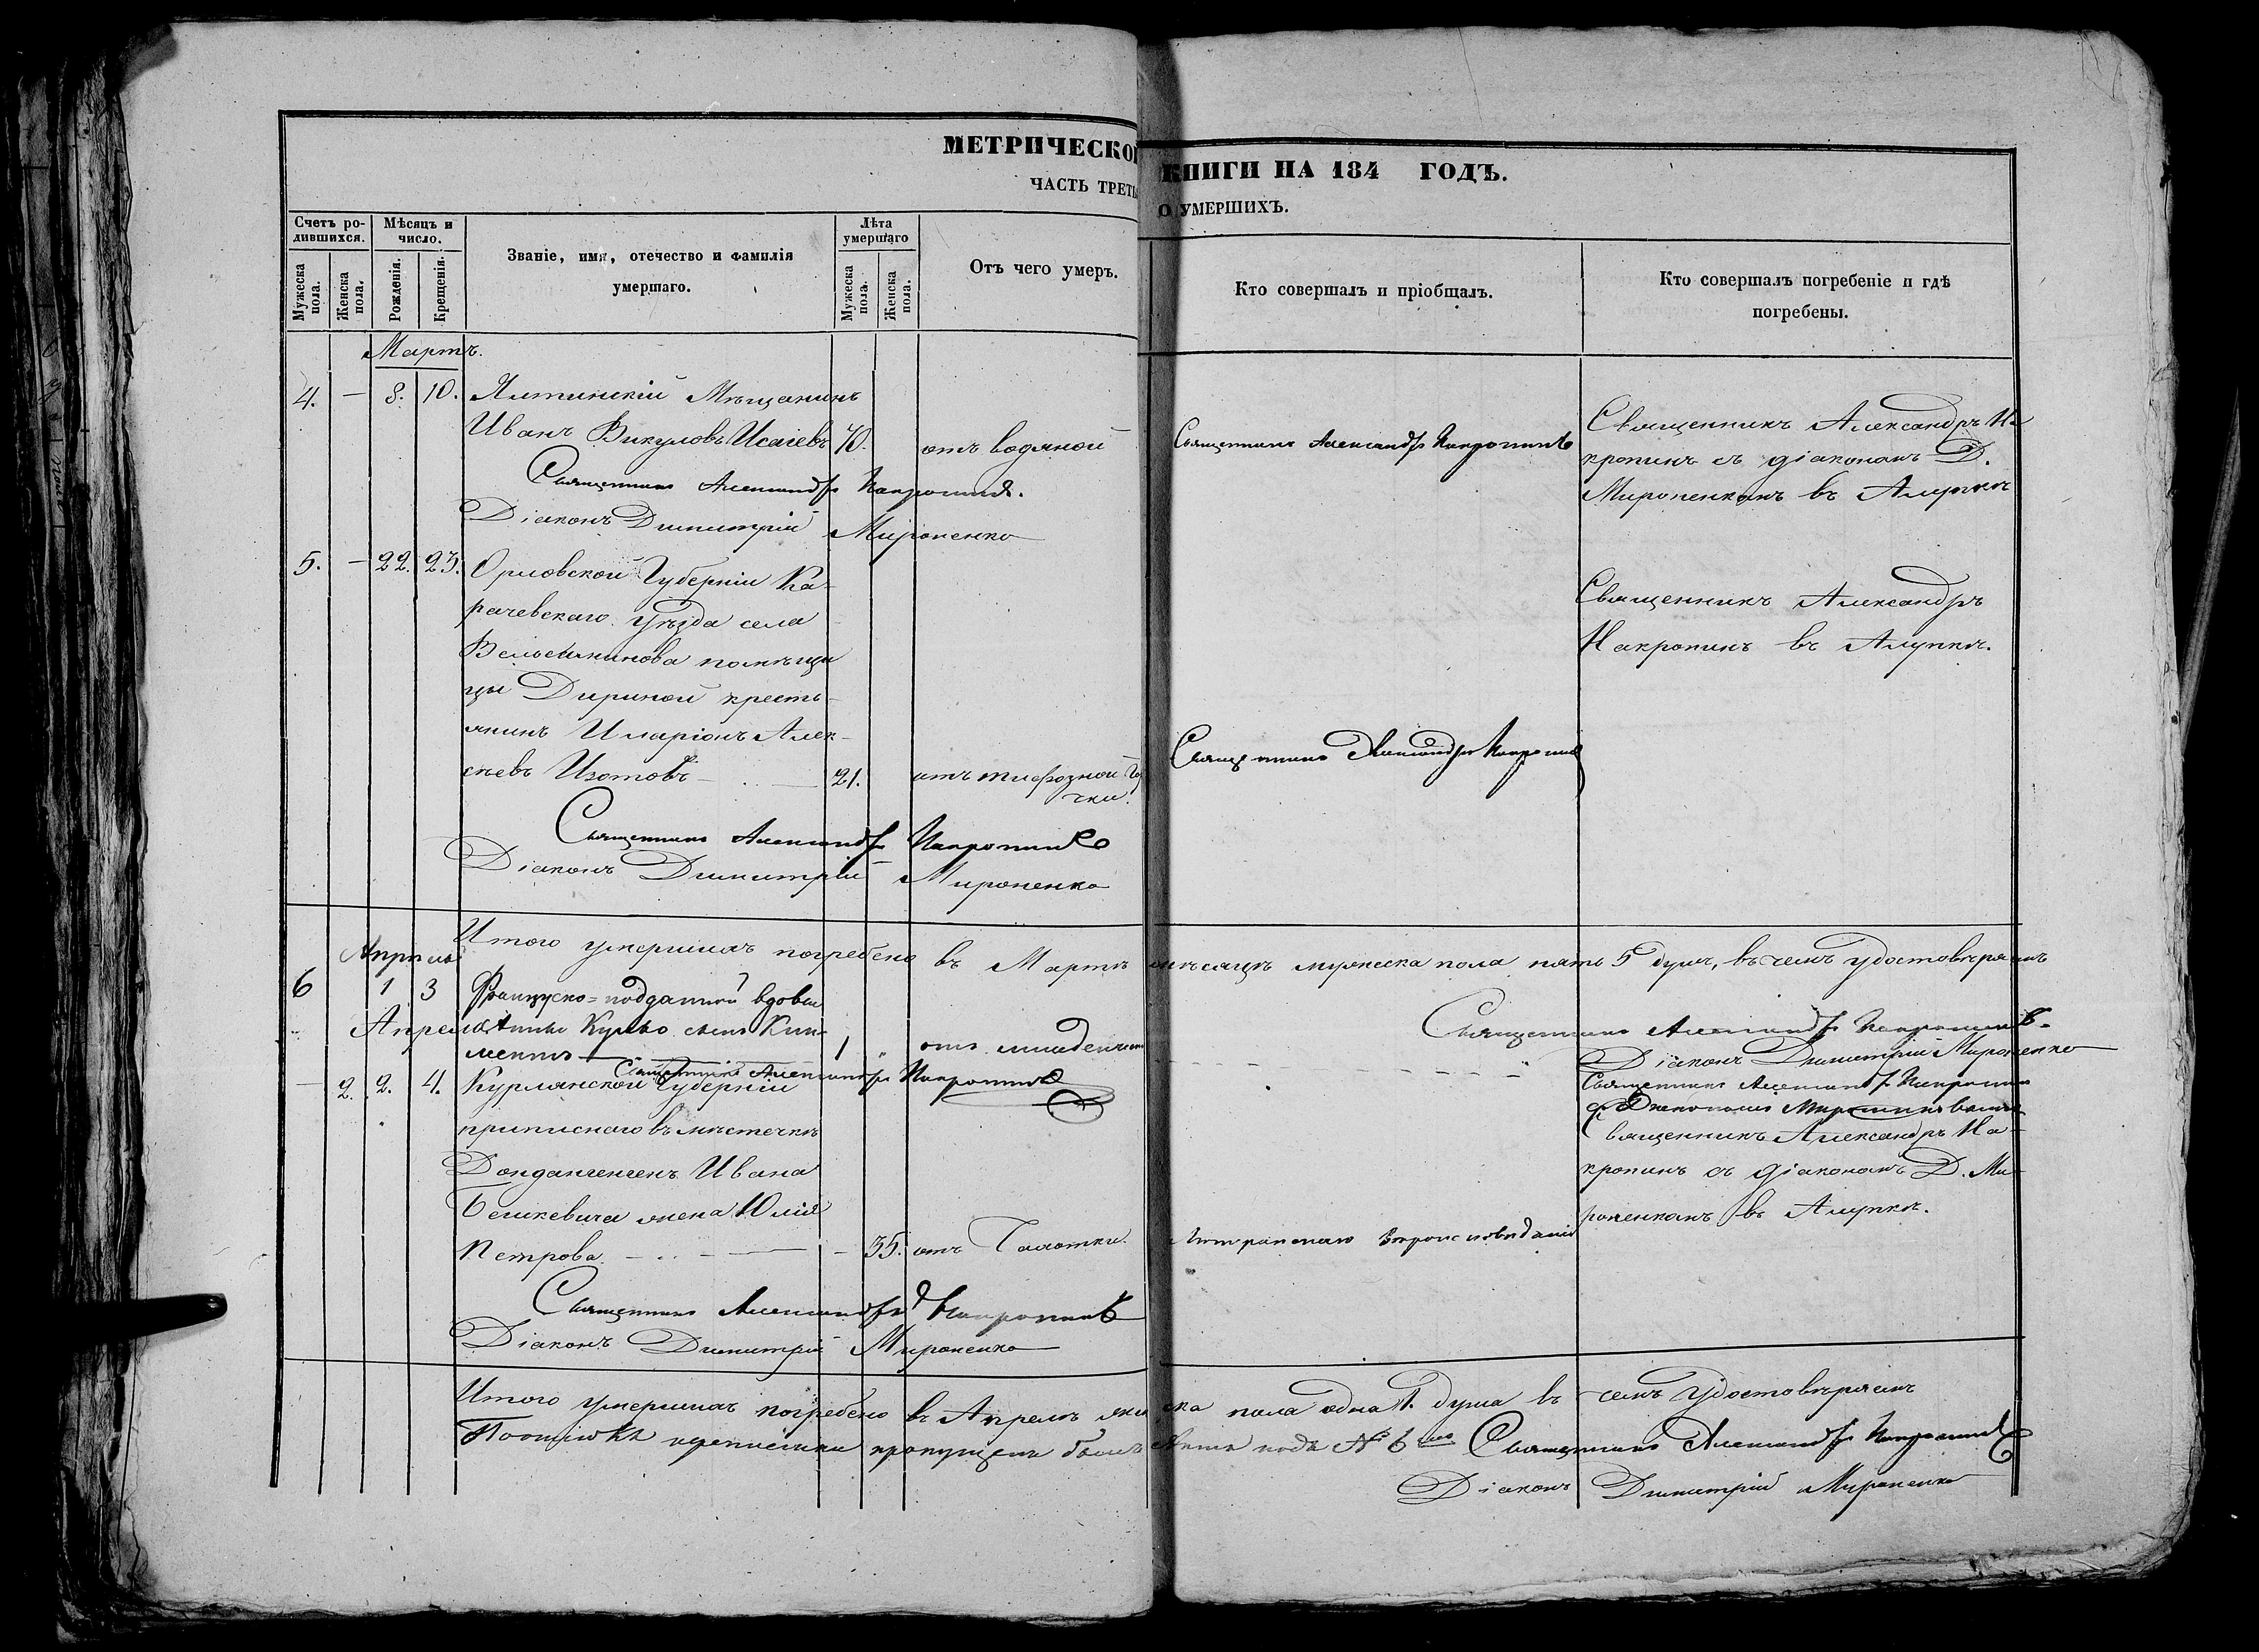 МЕТРИЧЕСКОЙ КНИГИ НА 184 ГОДЪ.
ЧАСТЬ ТРЕТЬ О УМЕРШИХЪ.
Счетъ ро-
дившихся.
Мужеска пола.
Женска пола.
Мѣсяцъ и
число.
Рожденія.
Крещенія.
Званіе, имя, отечество и фамилія
умершаго.
Лѣта
умершаго
Мужеска пола.
Женска пола.
Отъ чего умеръ.
Кто совершалъ и пріобщалъ.
Кто совершалъ погребеніе и гдѣ
погребены.
Мартъ.
4. — 8. 10. Ялтинскій Мѣщанинъ
Иванъ Викуловъ Исаіевъ 70. отъ водяной
Священникъ Александръ
Діаконъ Димитрій Мироненко
Священникъ Александръ
Священникъ Александръ На
кропинъ съ діакономъ Д.
Мироненкомъ въ Алупкѣ
5. — 22. 23. Орловской Губерніи Ка-
рачевскаго уѣзда села
помѣщи
цы Дириной кресть-
янинъ Иларіонъ Алек-
сѣевъ Изотовъ — 21. отъ тифозной го
чки.
Священникъ Александръ
Діаконъ Димитрій Мироненко
Священникъ Александръ
Священникъ Александръ
Накропинъ въ Алупкѣ.
Итого умершихъ погребено въ Мартѣ мѣсяцѣ мужеска пола пять 5 душъ, въ чемъ удостовѣряемъ
Священникъ Александръ
Діаконъ Димитрій Мироненко
Апрель
6 1 3 Французско-подданной вдовы
Анны сынъ Кли-
ментъ — 1 отъ младенческ
Священникъ Александръ
Священникъ Александръ
съ Діакономъ
Апрель
— 2. 2. 4. Курлянской Губерніи
приписнаго въ мѣстечкѣ
Дондангенгенъ Ивана
жена Юлія
Петрова — 35. отъ Чахотки.
Священникъ Александръ
Діаконъ Димитрій Мироненко
Лютеранскаго вѣроисповѣданія
Священникъ Александръ На-
кропинъ съ діакономъ Д. Ми-
роненкомъ въ Алупкѣ.
Итого умершихъ погребено въ Апрелѣ женска пола одна 1. душа въ чемъ удостовѣряемъ
По ошибкѣ переписчика пропущенъ былъ подъ № 6 Священникъ Александръ
Діаконъ Димитрій Мироненко